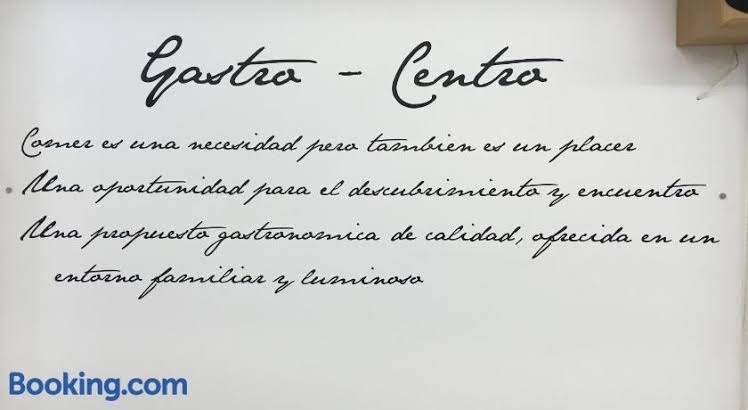 Gastro - Centro
Comer es una necesidad pero tambien es un placer
Una oportunidad para el descubrimiento y encuentro
Una propuesta gastronomica de calidad, ofrecida en un
entorno familiar y luminoso
Booking.com